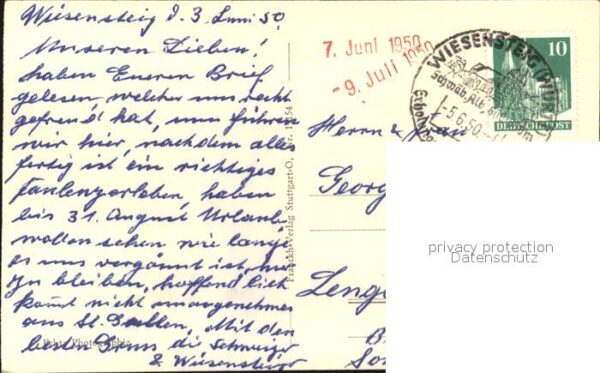 Wiesensteig d. 3. Juni 50.
Unseren Lieben!
haben Eueren Brief
gelesen, welcher uns recht
gefreud hat, nun führen
wir hier, nachdem alles
fertig ist ein richtiges
Faulenzerleben, haben
bis 31. August Urlaub,
wollen sehen wie lange
es uns vergönnt ist, hier
zu bleiben, hoffendlich
komt nicht unangenehmes
aus St. Gallen, Mit den
besten Gruss die Schweizer
z. Wiesensteig
Echte Photographie
Franckh-Verlag Stuttgart-O,
7. Juni 1950
- 9. Juli 1950
WIESENSTEIG (WÜRTT)
Schwäb. Alb
-5.6.50
10
DEUTSCHE POST
Herrn & Frau
Georg
Leng
privacy protection
Datenschutz